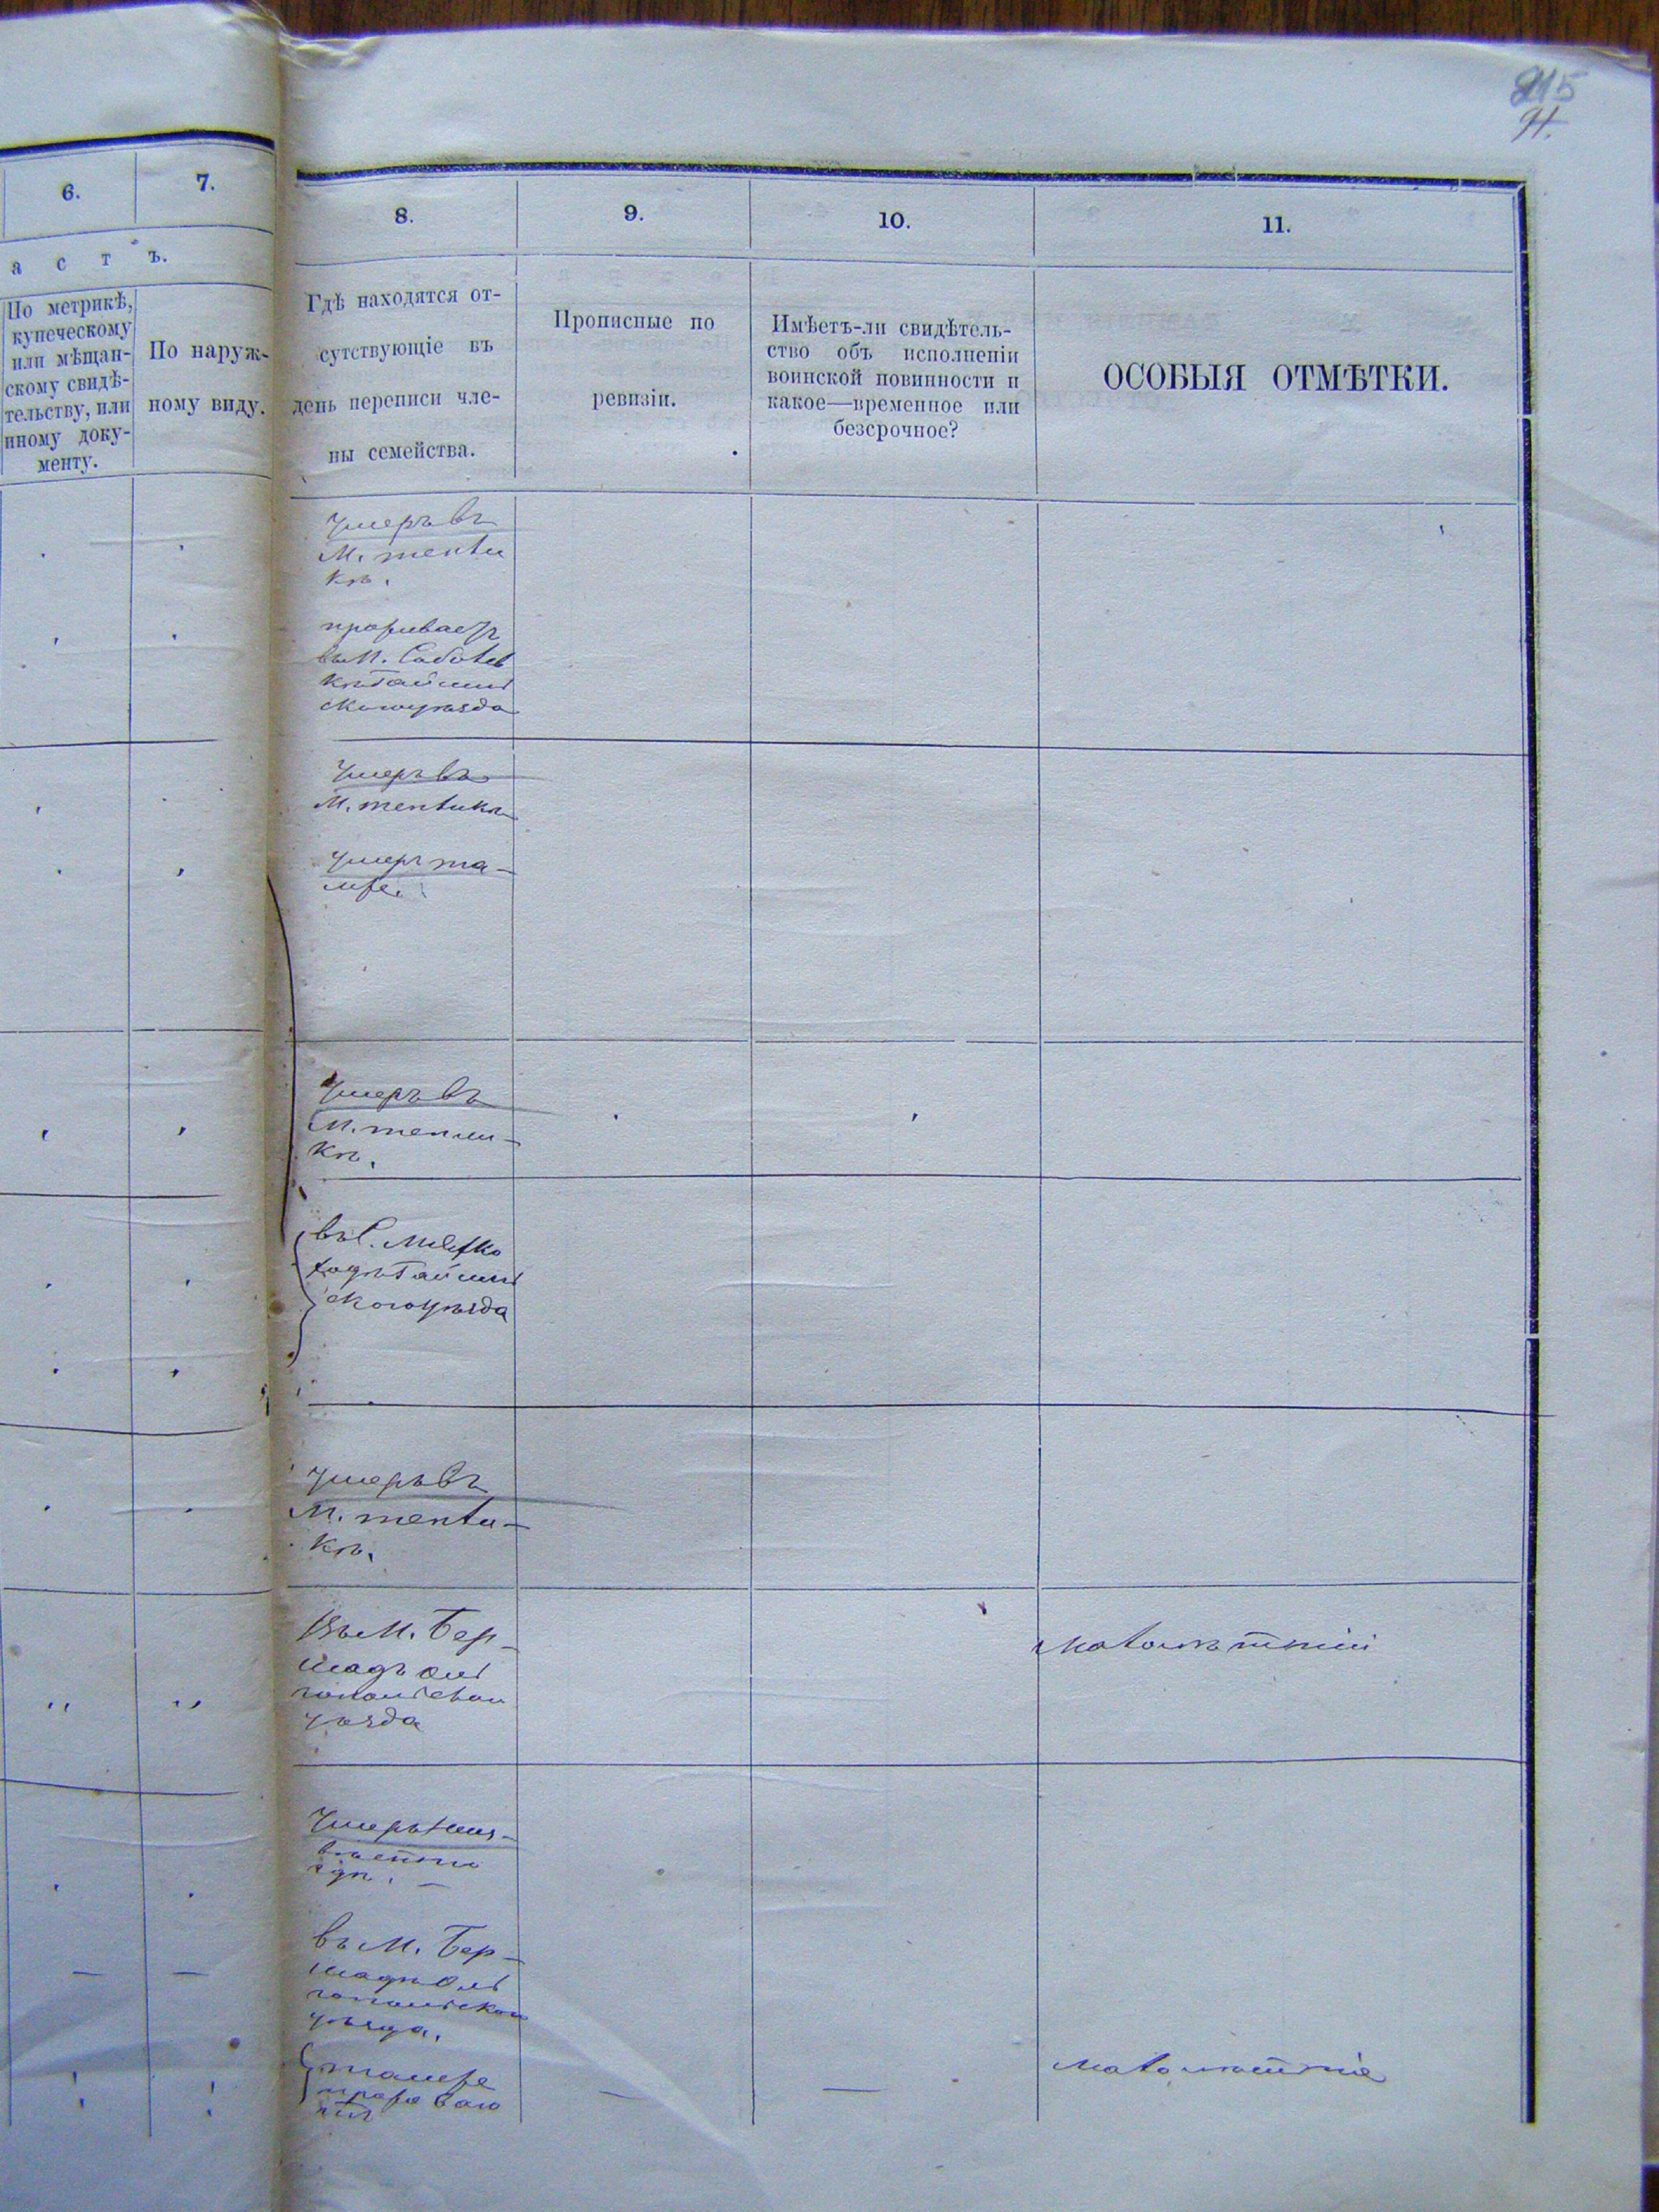 215
91.
6.
7.
8.
9.
10.
11.
а с т ъ.
По метрикѣ,
купеческому
или мѣщан-
скому свидѣ-
тельству, или
иному доку-
менту.
По наруж-
ному виду.
Гдѣ находятся от-
сутствующіе въ
день переписи чле-
ны семейства.
Прописные по
ревизіи.
Имѣетъ-ли свидѣтель-
ство объ исполненіи
воинской повинности и
какое—временное или
безсрочное?
ОСОБЫЯ ОТМѢТКИ.
Умеръ въ
М. тепли
кѣ.
проживаетъ
въ М.
уѣзда
Умеръ въ
М. тепликѣ
Умеръ та-
мже.
Умеръ въ
М. тепли-
кѣ.
въ С.
уѣзда
Умеръ въ
М. тепли-
кѣ.
Въ М. Бер-
шадъ Оль
гопольскаго
уѣзда
малолѣтній
Умеръ
въ М. Бер-
шадѣ Оль
гопольскаго
уѣзда.
тамже
проживаю
тъ
малолѣтніе